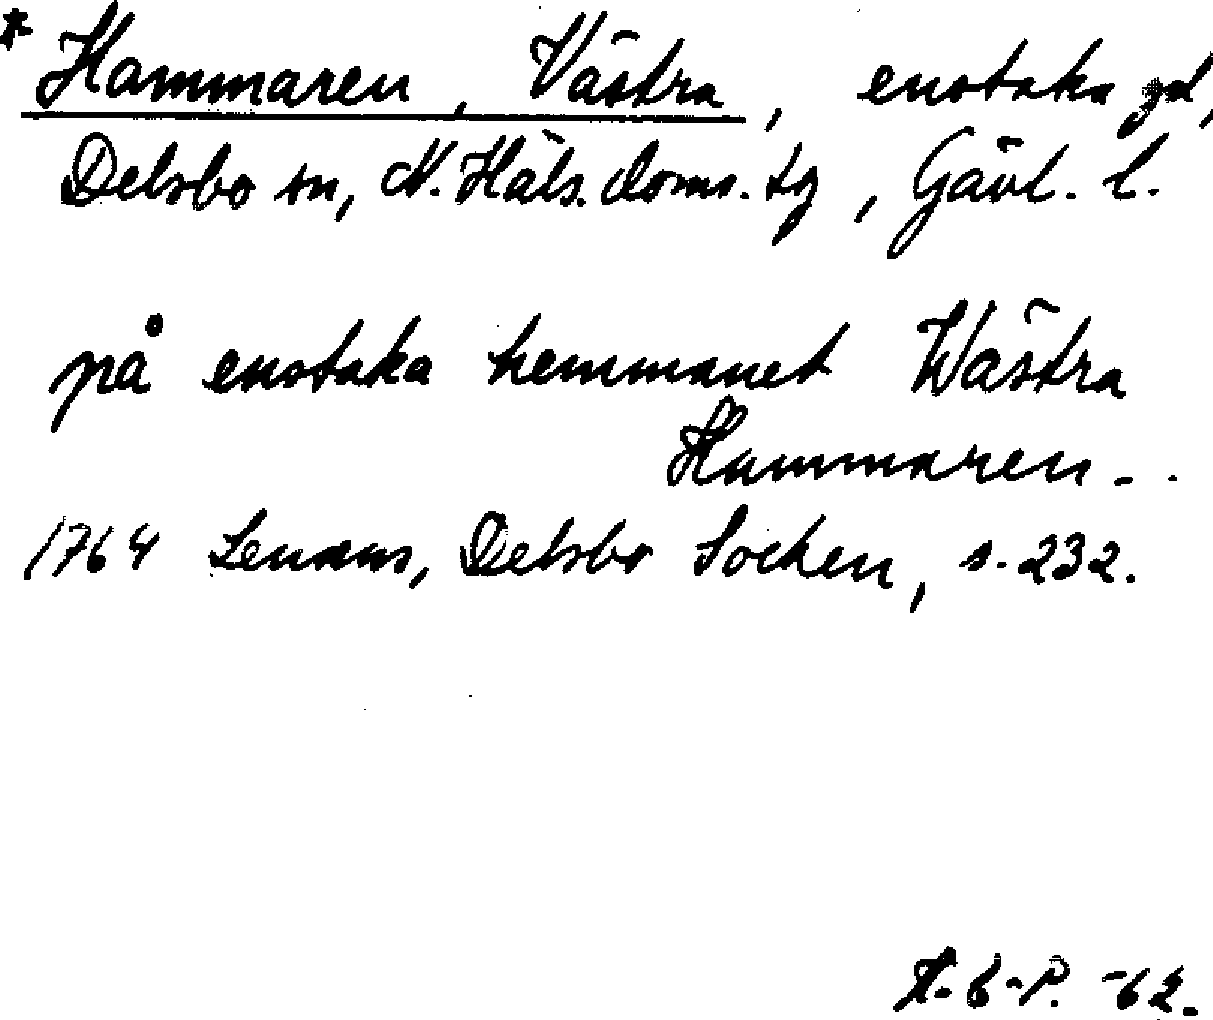 * Hammaren, Västra, enstaka gd,
Delsbo sn, N. Häls. doms. tg, Gävl. l.
på enstaka hemmanet Wästra
Hammaren - .
1764 Lenæus, Delsbo Socken, s. 232.
A.6-P. -62.